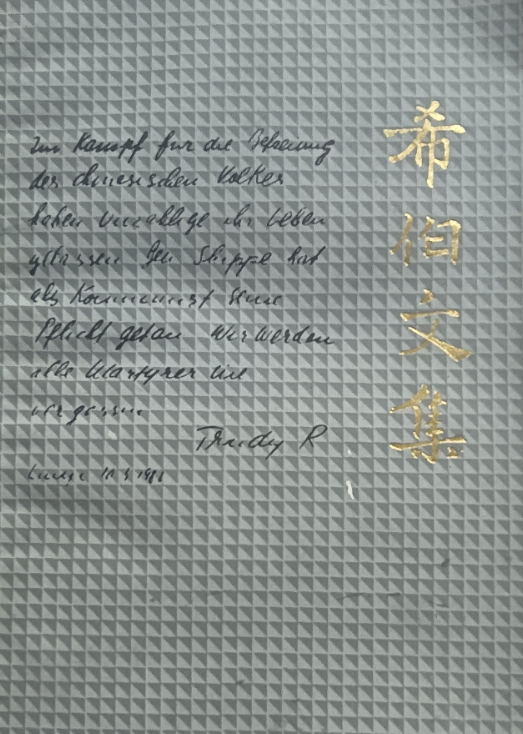 Im Kampf für die Befreiung
des chinesischen Volkes
haben unzählige ihr Leben
gelassen Shippe hat
als Kommunist seine
Pflicht getan Wir werden
alle Martyrer nie
vergessen
Trudy R
希伯文集